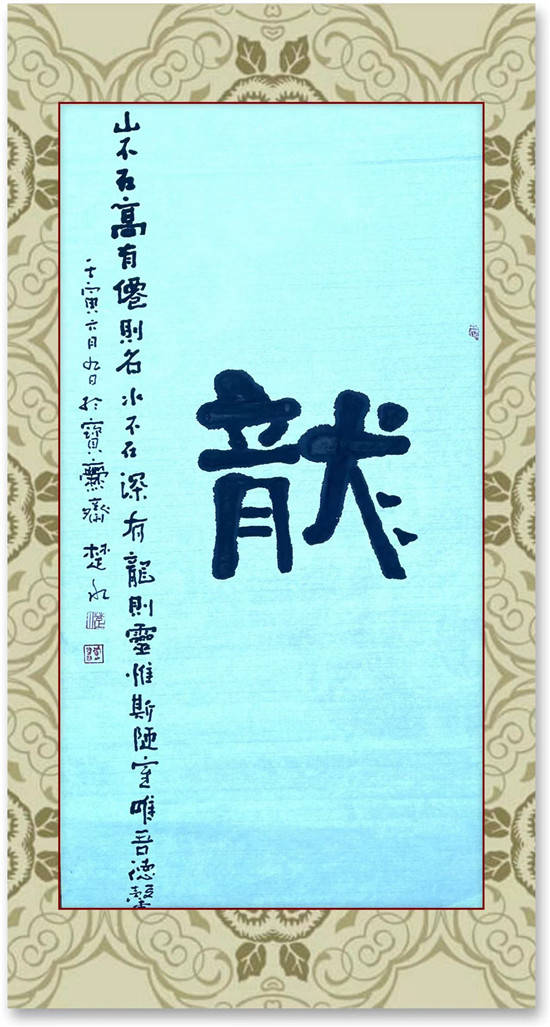 龍
山不在高有僊則名水不在深有龍則靈惟斯陋室唯吾德馨
壬寅六月九日於寶齋楚水